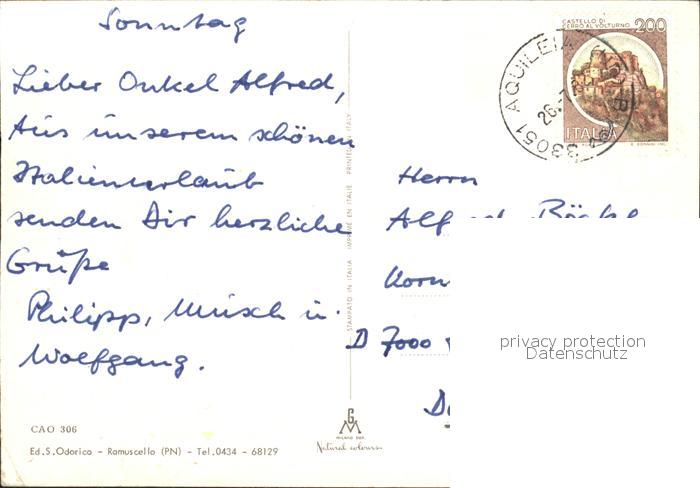 Sonntag
Lieber Onkel Alfred,
Aus unserem schönen
Italienurlaub
senden Dir herzliche
Grüße
Philipp, Musch u.
Wolfgang.
CAO 306
Ed.S.Odorico - Ramuscello (PN) - Tel.0434 - 68129
STAMPATO IN ITALIA IMPRIMÉ EN ITALIE PRINTED IN ITALY
GM
MILANO
Natural colours
CASTELLO DI
CERRO AL VOLTURNO 200
ITALIA
33051 AQUILEIA
26.
Herrn
Alfred
D 7000
privacy protection
Datenschutz